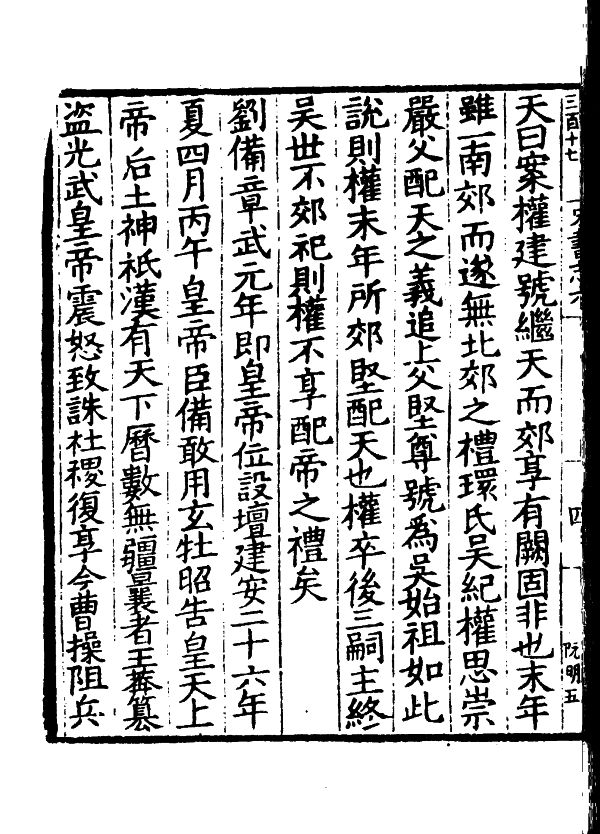 天曰案權建號繼天而郊享有闕固非也末年
雖一南郊而遂無北郊之禮環氏吳紀權思崇
嚴父配天之義追上父堅尊號爲吳始祖如此
說則權末年所郊堅配天也權卒後三嗣主終
吳世不郊祀則權不享配帝之禮矣
劉備章武元年即皇帝位設壇建安二十六年
夏四月丙午皇帝臣備敢用玄牡昭告皇天上
帝后土神祇漢有天下曆數無疆曩者王莽篡
盜光武皇帝震怒致誅社稷復享今曹操阻兵